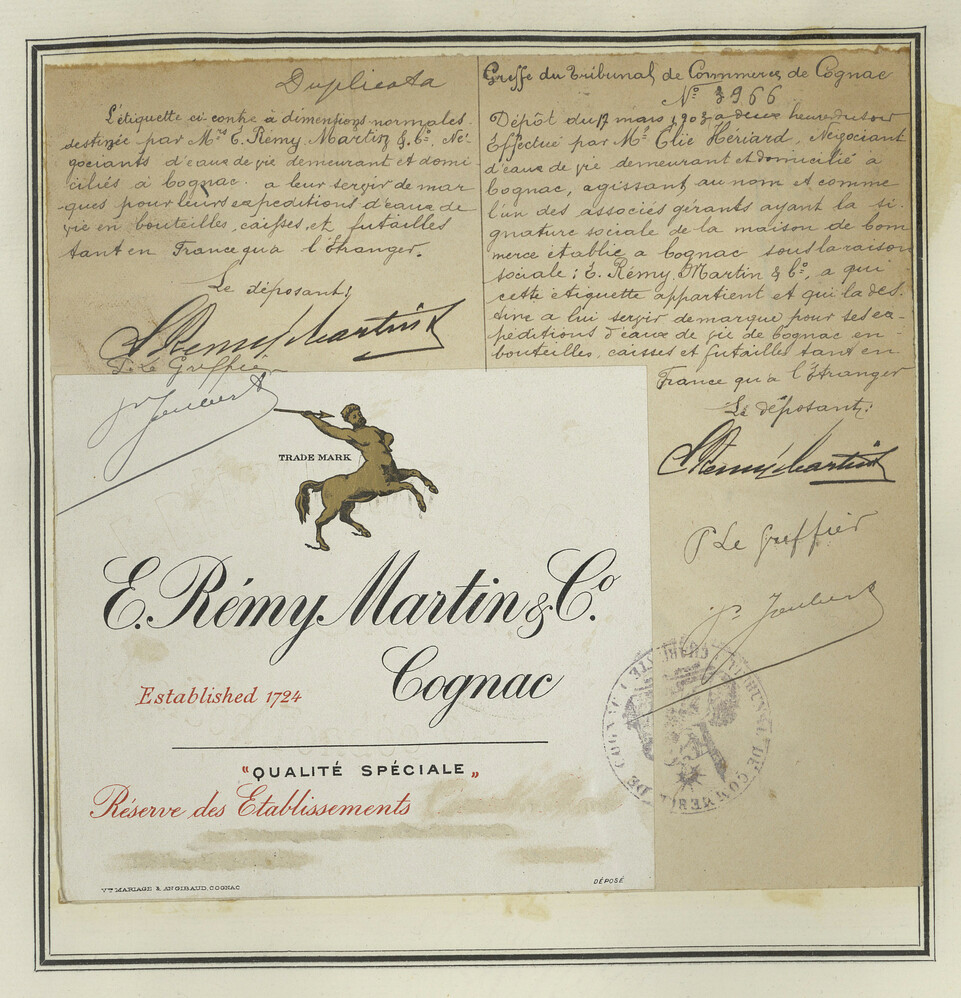 Duplicata
L'étiquette ci-contre à dimensions normales.
destinée par Mrs E. Rémy Martin & Co, Né-
gociants d'eaux de vie demeurant et domi-
ciliés à Cognac. a leur servir de mar-
ques pour leurs expéditions d'eaux de
vie en bouteilles, caisses, et futailles
tant en France qu'a l'Etranger.
Le déposant;
E. Remy Martin & Co
P. Le Greffier
Joubert
Greffe du Tribunal de Commerce de Cognac
No 3966
Dépôt du 17 mars 1903 a deux heures du soir
Effectué par Mr Elie Hériard, Négociant
d'eaux de vie demeurant et domicilié a
Cognac, agissant au nom et comme
l'un des associés gérants ayant la si-
gnature sociale de la maison de com
merce établie a Cognac sous la raison
sociale; E. Rémy Martin & Co, a qui
cette étiquette appartient et qui la des-
tine a lui servir de marque pour ses ex-
péditions d'eaux de vie de Cognac en-
bouteilles, caisses et futailles tant en
France qu'a l'Etranger
Le déposant;
E. Remy Martin & Co
P Le Greffier
Joubert
TRADE MARK
E. Rémy Martin & Co.
Cognac
Established 1724
"QUALITÉ SPÉCIALE"
Réserve des Etablissements
Vve MARIAGE & ANGIBAUD, COGNAC
DÉPOSÉ
TRIBUNAL DE COMMERCE DE COGNAC (CHARENTE)